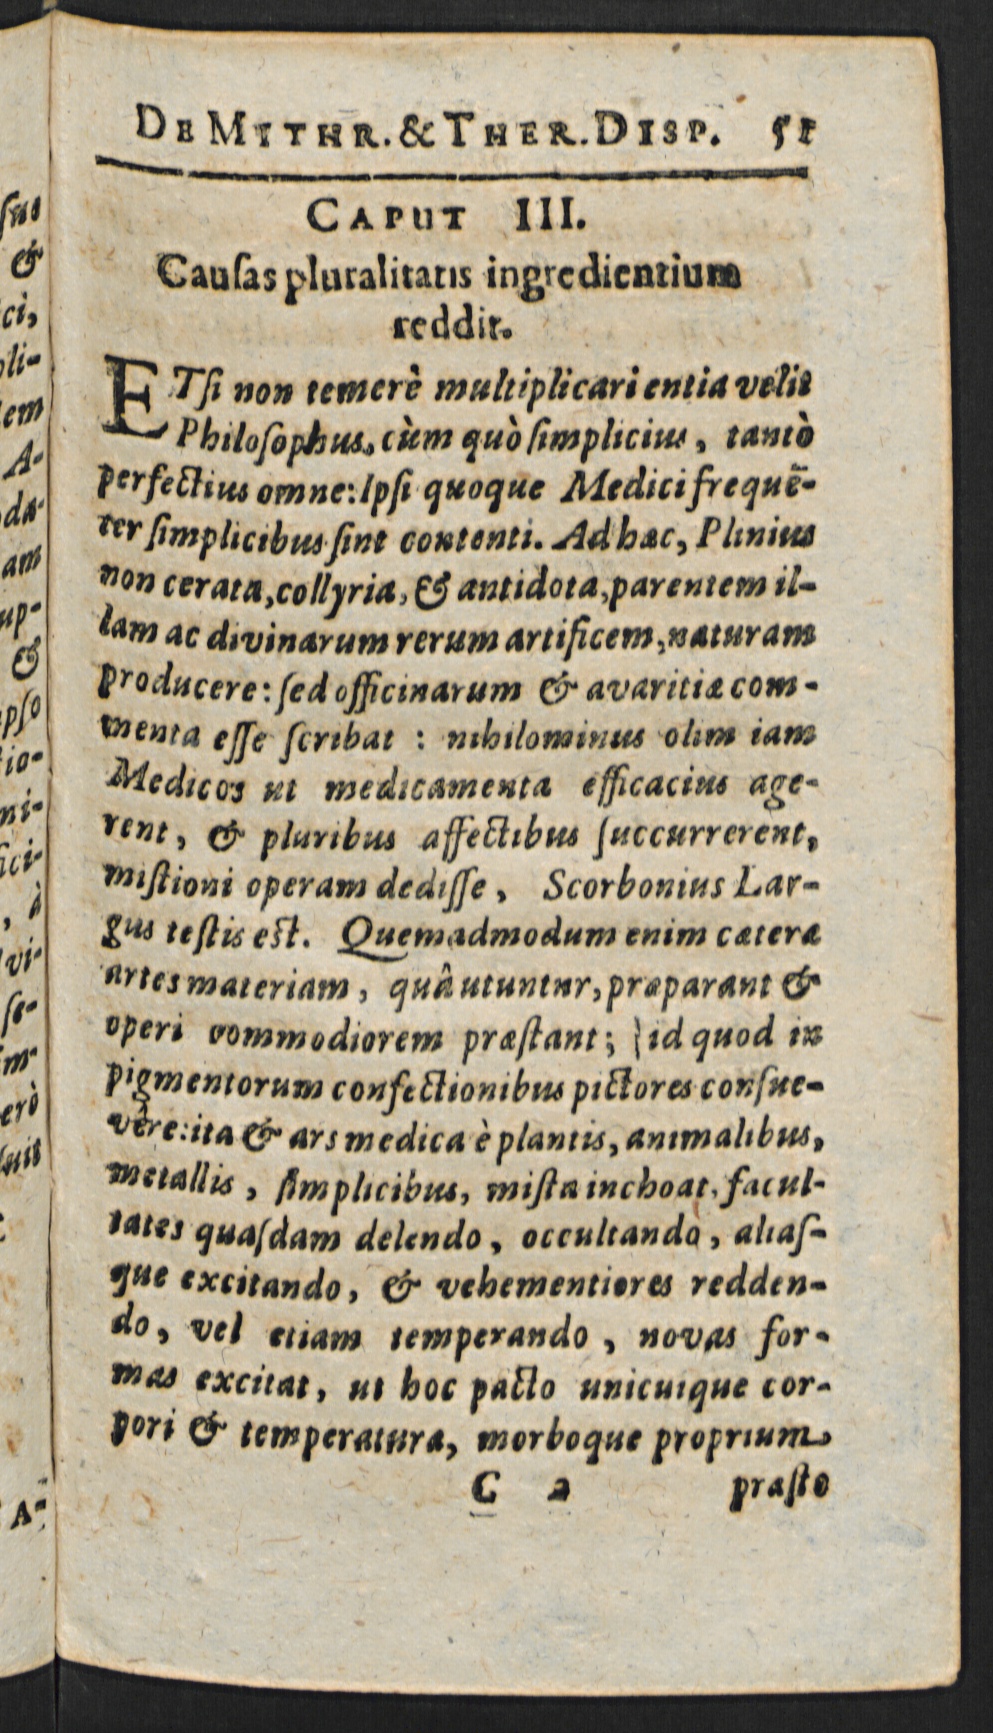 DE MITHR. & THER. DISP. 51
CAPUT III.
Cauſas pluralitatis ingredientium
reddit.
ETſi non temerè multiplicari entia velit
Philoſophus, cùm quò ſimplicius, tantò
perfectius omne: Ipſi quoque Medici frequẽ-
ter ſimplicibus ſint contenti. Ad hæc, Plinius
non cerata, collyria, & antidota, parentem il-
lam ac divinarum rerum artificem, naturam
producere: ſed officinarum & avaritiæ com-
menta eſſe ſcribat : nihilominus olim iam
Medicos ut medicamenta efficacius age-
rent, & pluribus affectibus ſuccurrerent,
miſtioni operam dediſſe, Scorbonius Lar-
gus teſtis est. Quemadmodum enim cæteræ
artes materiam, quâ utuntur, præparant &
operi commodiorem præſtant; id quod in
pigmentorum confectionibus pictores conſue-
vêre: ita & ars medica è plantis, animalibus,
metallis, ſimplicibus, miſta inchoat, facul-
tates quaſdam delendo, occultando, aliaſ-
que excitando, & vehementiores redden-
do, vel etiam temperando, novas for-
mas excitat, ut hoc pacto unicuique cor-
pori & temperaturæ, morboque proprium
C 2 præſto
ſuo
&
ci,
pli-
tem
A-
oda-
am
up-
&
ipſo
tio-
ni-
ici-
, à
vi-
ſe-
im-
erò
luit
A-